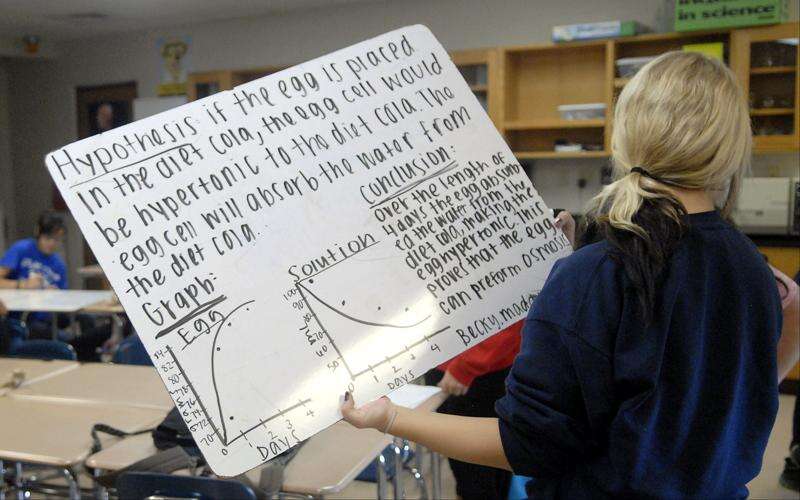 in science
Hypothesis if the egg is placed
in the diet cola, the egg cell would
be hypertonic to the diet cola. The
egg cell will absorb the water from
the diet cola.
Conclusion:
over the length of
4 days the egg absorb
ed the water from the
diet cola, making the
egg hypertonic. This
proves that the egg
can preform osmosis
Becky, mad
Graph:
Egg
84
82
80
78
76
74
72
70
0
2
3
4
Days
Solution
100
90
80
60
50
0
1
2
3
4
Days